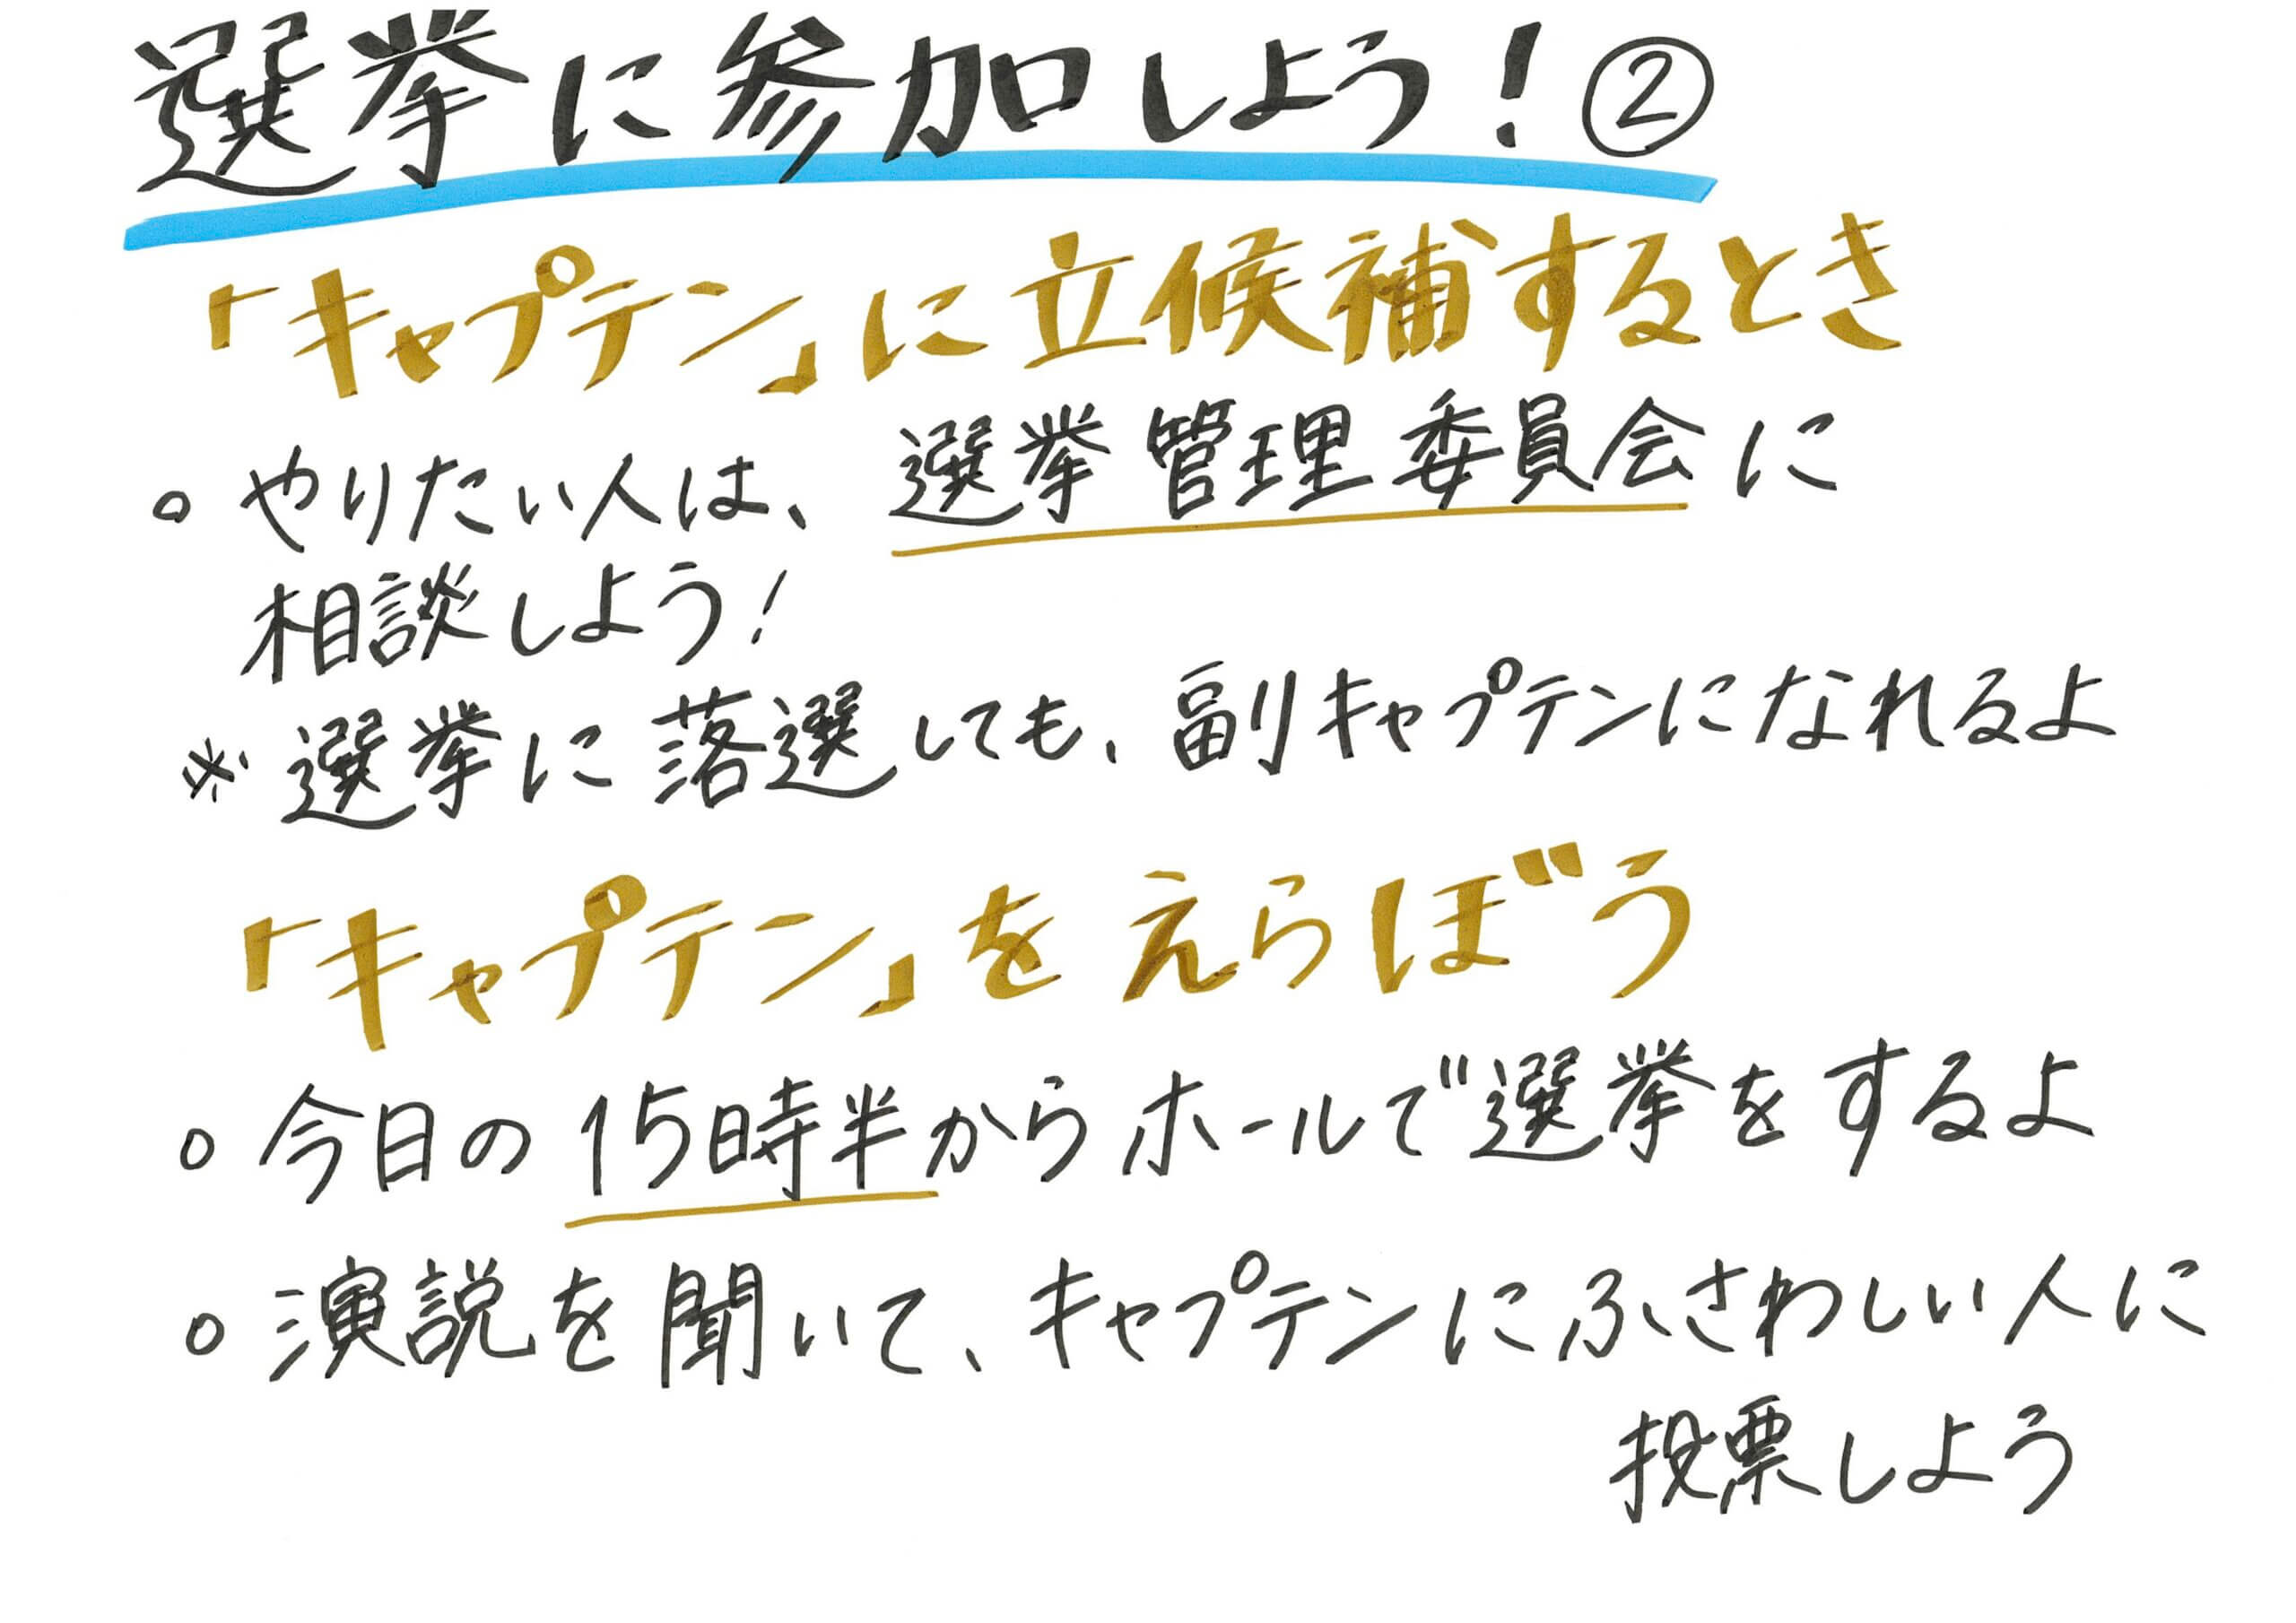 選挙に参加しよう!②
「キャプテン」に立候補するとき
○ やりたい人は、選挙管理委員会に
相談しよう!
※ 選挙に落選しても、副キャプテンになれるよ
「キャプテン」をえらぼう
○ 今日の15時半からホールで選挙をするよ
○ 演説を聞いて、キャプテンにふさわしい人に
投票しよう